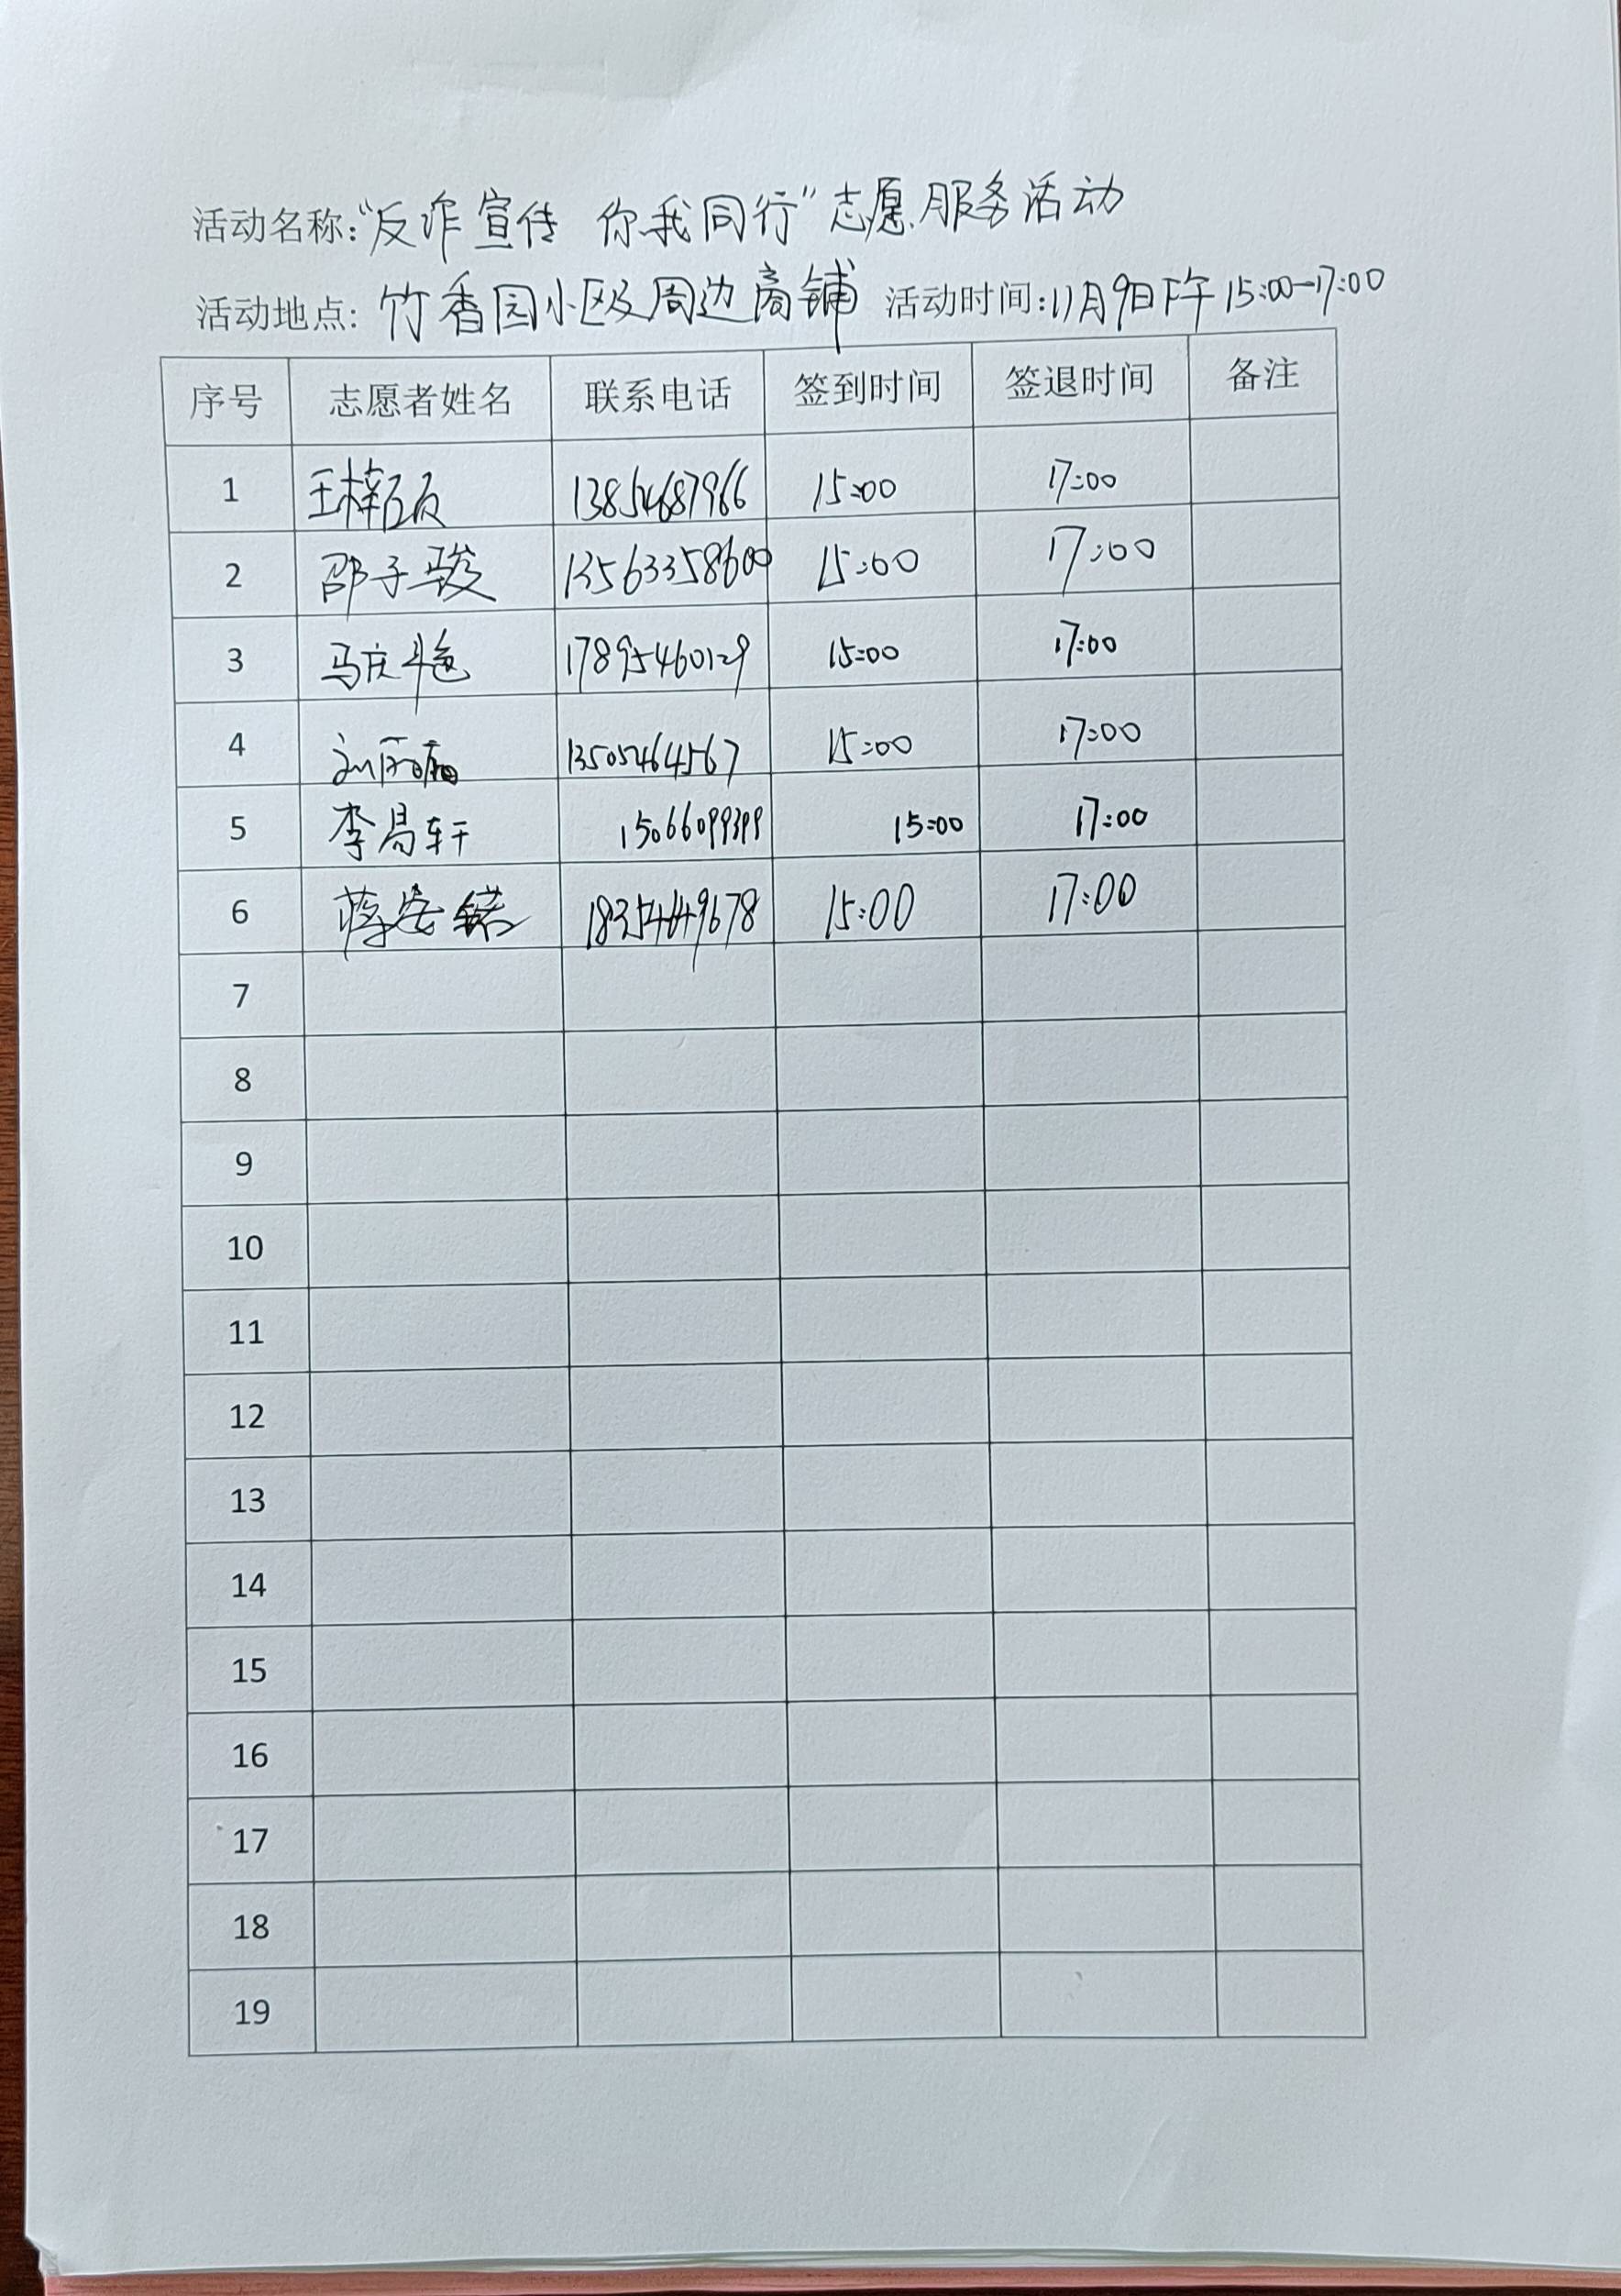 活动名称:“反诈宣传 你我同行”志愿服务活动
活动地点: 竹香园小区及周边商铺 活动时间:11月9日下午 15:00-17:00
序号 志愿者姓名 联系电话 签到时间 签退时间 备注
1 13854687966 15:00 17:00
2 邵子骏 13563358600 15:00 17:00
3 17895460129 15:00 17:00
4 13505464567 15:00 17:00
5 李昌轩 15066099399 15:00 17:00
6 蒋安锘 18354649678 15:00 17:00
7
8
9
10
11
12
13
14
15
16
17
18
19